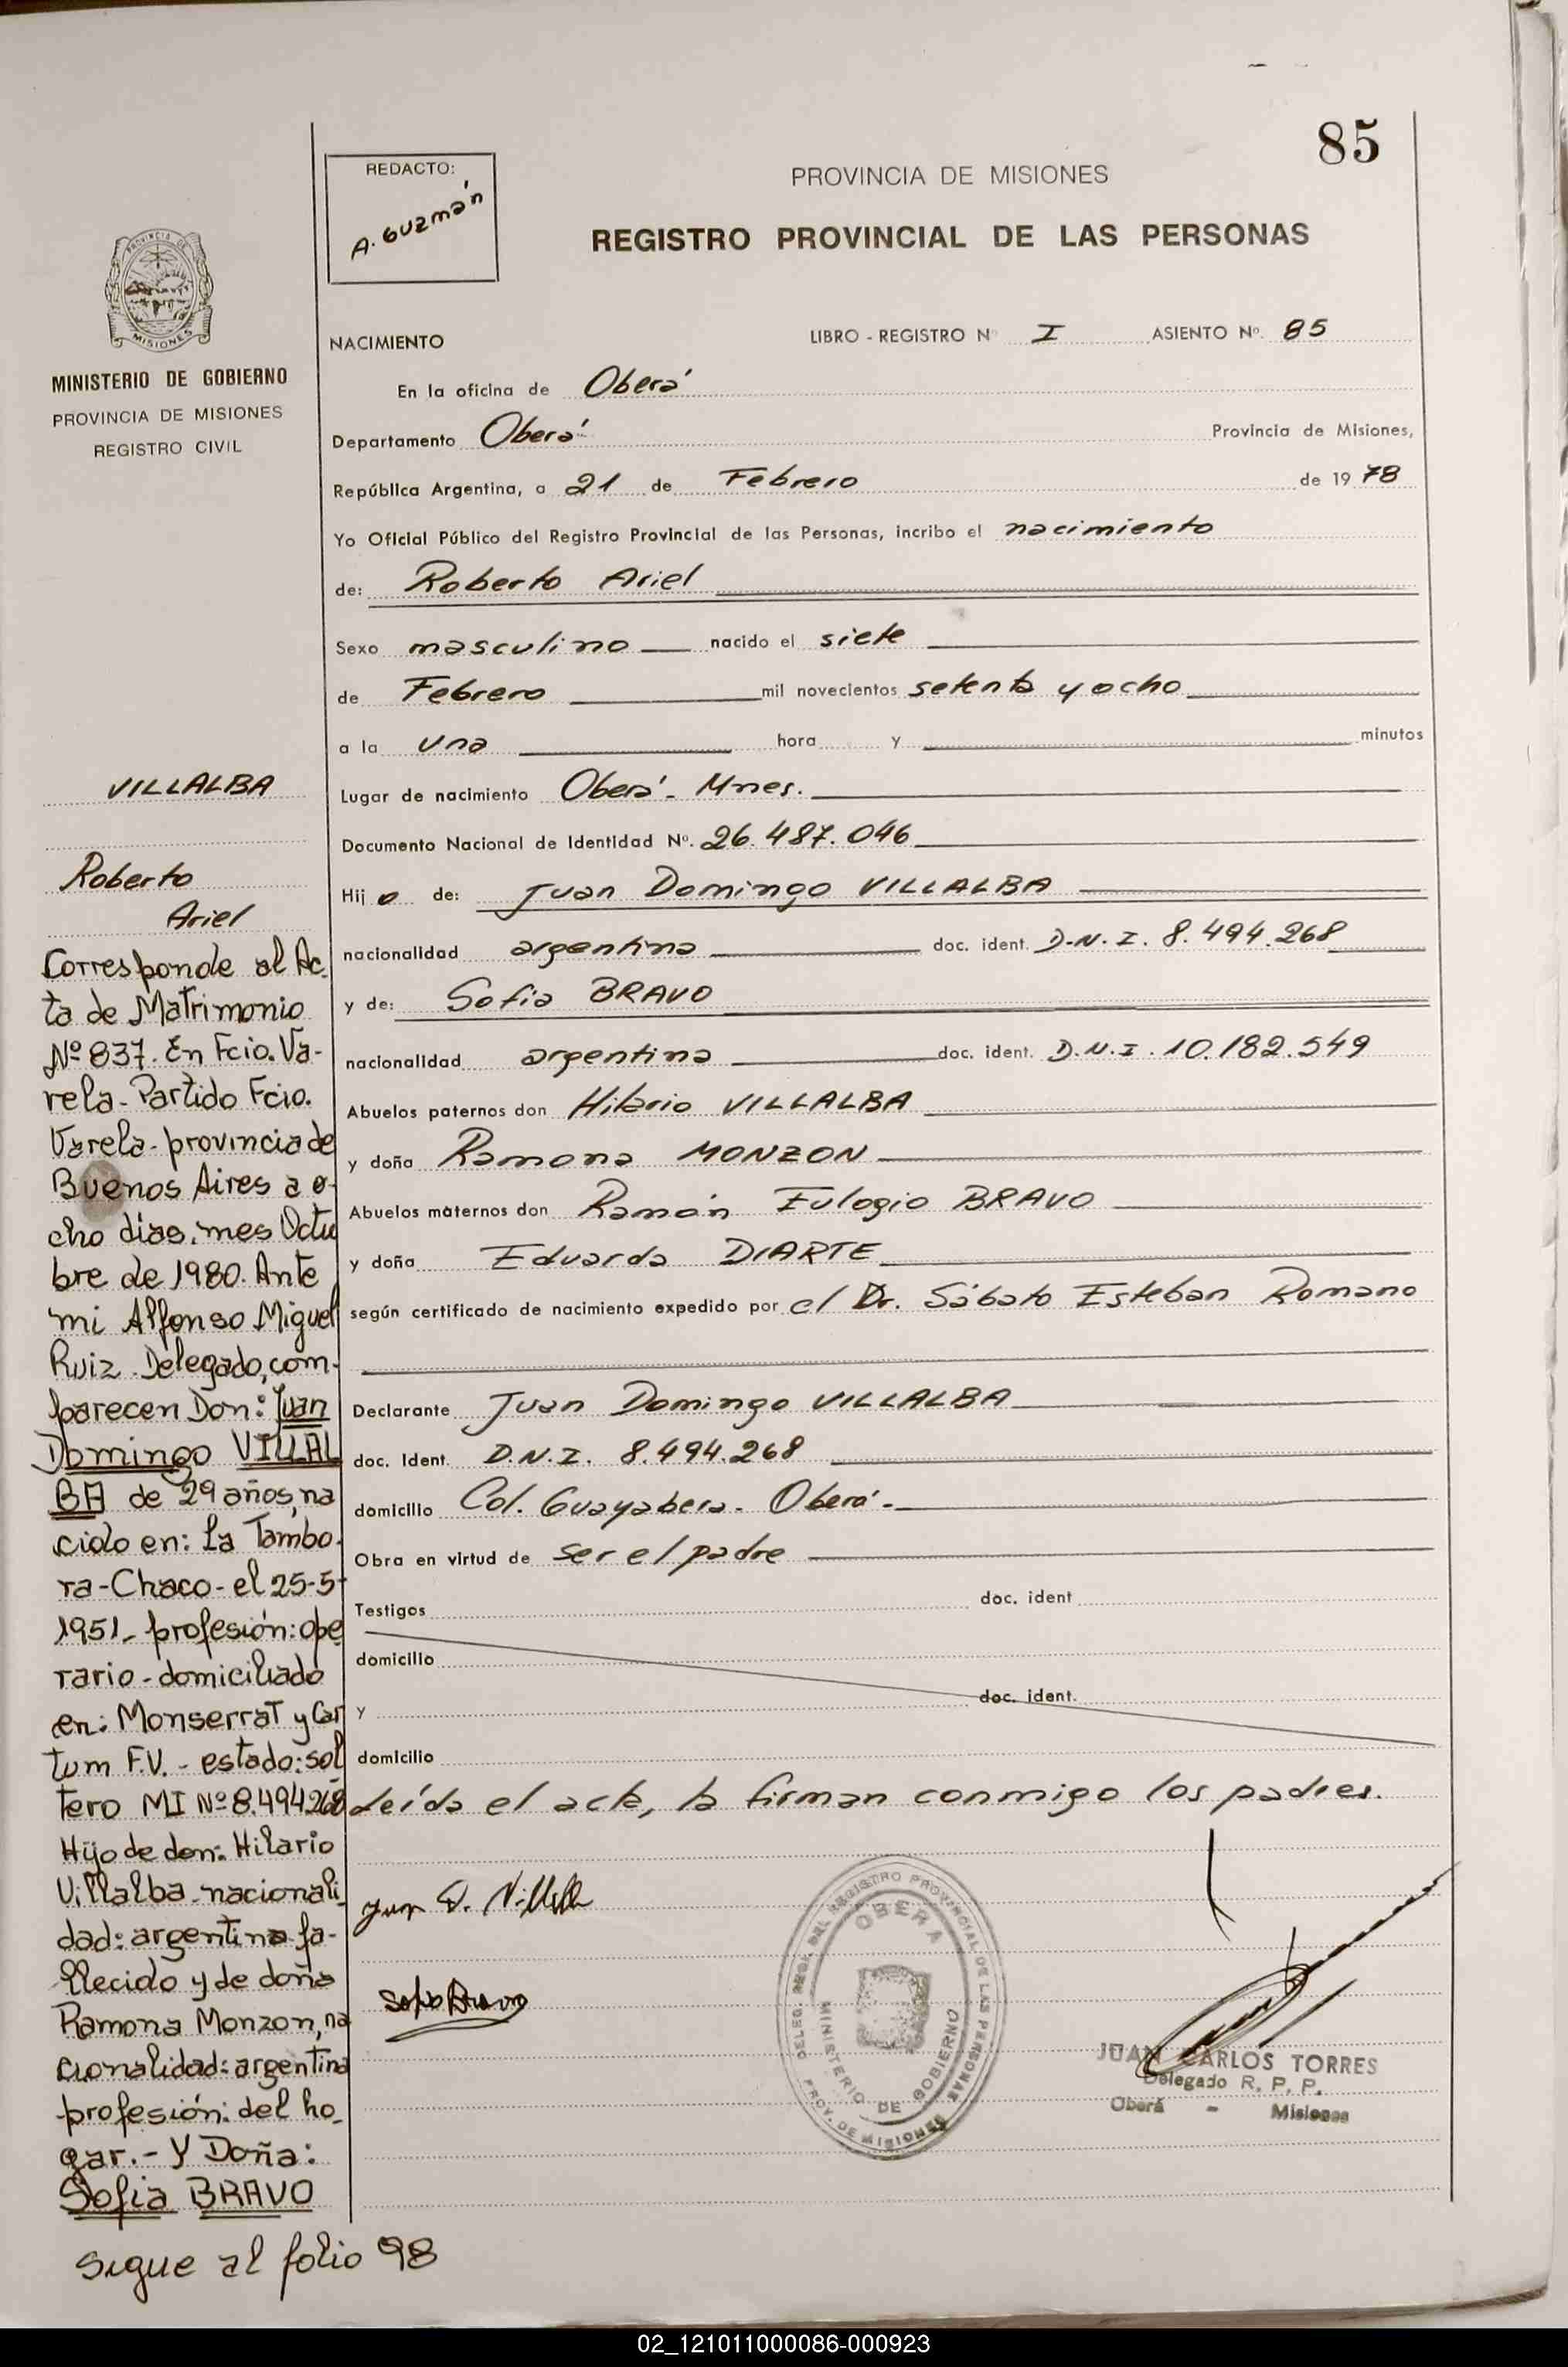 85
REDACTO:
A. Guzmán
PROVINCIA DE MISIONES
REGISTRO PROVINCIAL DE LAS PERSONAS
PROVINCIA DE
MISIONES
MINISTERIO DE GOBIERNO
PROVINCIA DE MISIONES
REGISTRO CIVIL
NACIMIENTO LIBRO - REGISTRO Nº I ASIENTO Nº. 85
En la oficina de Oberá
Departamento Oberá Provincia de Misiones,
República Argentina, a 21 de Febrero de 19 78
Yo Oficial Público del Registro Provincial de las Personas, incribo el nacimiento
de: Roberto Ariel
Sexo masculino nacido el siete
de Febrero mil novecientos setenta y ocho
a la una hora y minutos
Lugar de nacimiento Oberá - Mnes.
Documento Nacional de Identidad Nº. 26.487.046
Hij o de: Juan Domingo VILLALBA
nacionalidad argentina doc. ident. D.N.I. 8.494.268
y de: Sofia BRAVO
nacionalidad argentina doc. ident. D.N.I. 10.182.549
Abuelos paternos don Hilario VILLALBA
y doña Ramona MONZON
Abuelos maternos don Ramón Eulogio BRAVO
y doña Eduarda DIARTE
según certificado de nacimiento expedido por el Dr. Sábato Esteban Romano
Declarante Juan Domingo VILLALBA
doc. Ident. D.N.I. 8.494.268
domicilio Col. Guayabera - Oberá -
Obra en virtud de ser el padre
Testigos doc. ident
domicilio
y doc. ident.
domicilio
Leída el acta, la firman conmigo los padres.
Juan D. Villalba
Sofia Bravo
DELEG. REGI. DEL REGISTRO PROVINCIAL DE LAS PERSONAS
OBERA
MINISTERIO DE GOBIERNO
PROV. DE MISIONES
JUAN CARLOS TORRES
Delegado R. P. P.
Oberá - Misiones
VILLALBA
Roberto
Ariel
Corresponde al Ac-
ta de Matrimonio
Nº 837. En Fcio. Va-
rela - Partido Fcio.
Varela - provincia de
Buenos Aires a o-
cho días, mes Octu
bre de 1980. Ante
mi Alfonso Miguel
Ruiz Delegado, com-
parecen Don: Juan
Domingo VILLAL
BA de 29 años, na
cido en: La Tambo-
ra - Chaco - el 25-5-
1951 - profesión: ope
rario - domiciliado
en: Monserrat y Car
tum F.V. - estado: sol
tero MI Nº 8.494.268
Hijo de don: Hilario
Villalba - nacionali
dad: argentina fa-
llecido y de doña
Ramona Monzon, na
cionalidad: argentina
profesión: del ho-
gar. - Y Doña:
Sofia BRAVO
Sigue al folio 98
02_121011000086-000923